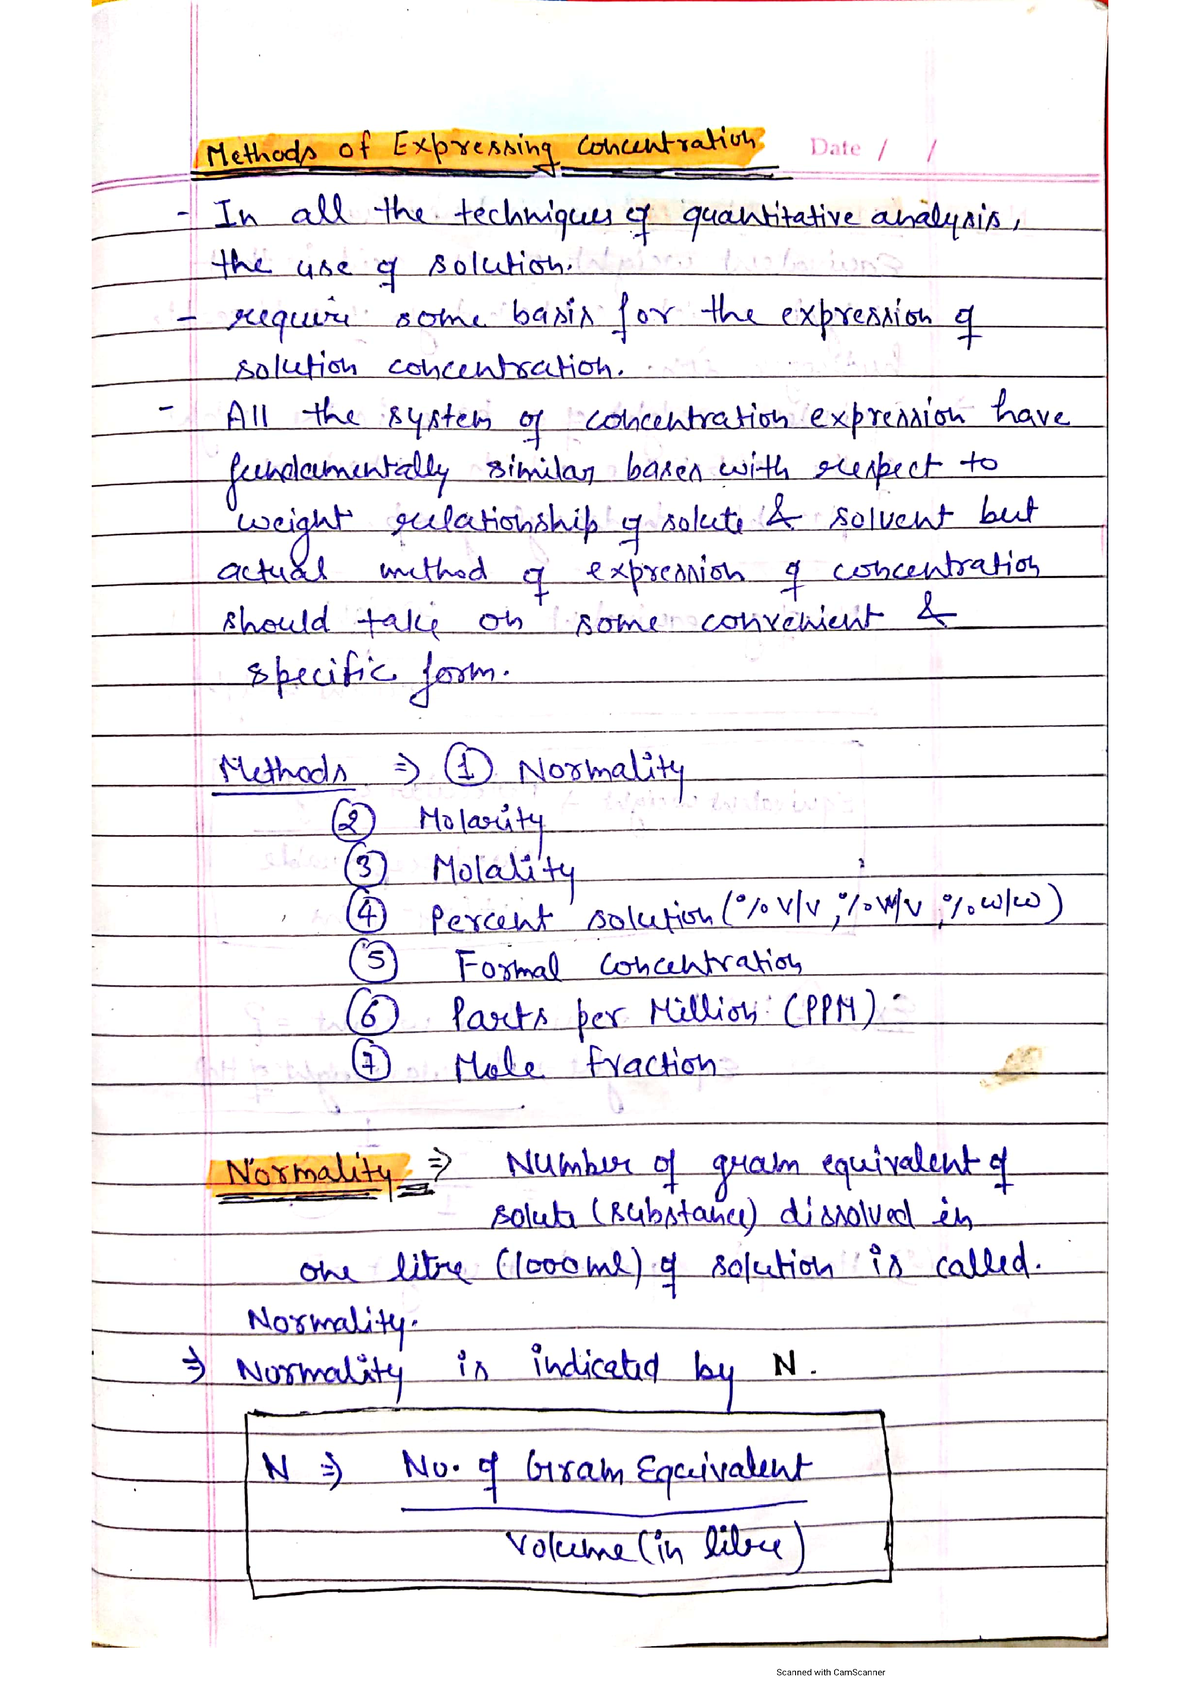 Methods of Expressing Concentration
Date / /
- In all the techniques of quantitative analysis,
the use of solution.
- require some basis for the expression of
solution concentration.
- All the system of concentration expression have
fundamentally similar bases with respect to
weight relationship of solute & solvent but
actual method of expression of concentration
should take on some convenient &
specific form.
Methods ⇒ ① Normality
② Molarity
③ Molality
④ Percent solution (% V/V, % W/V, % W/W)
⑤ Formal Concentration
⑥ Parts per Million (PPM)
⑦ Mole fraction
Normality ⇒ Number of gram equivalent of
solute (substance) dissolved in
one litre (1000 ml) of solution is called.
Normality.
⇒ Normality is indicated by N.
N ⇒ No. of Gram Equivalent
Volume (in litre)
Scanned with CamScanner